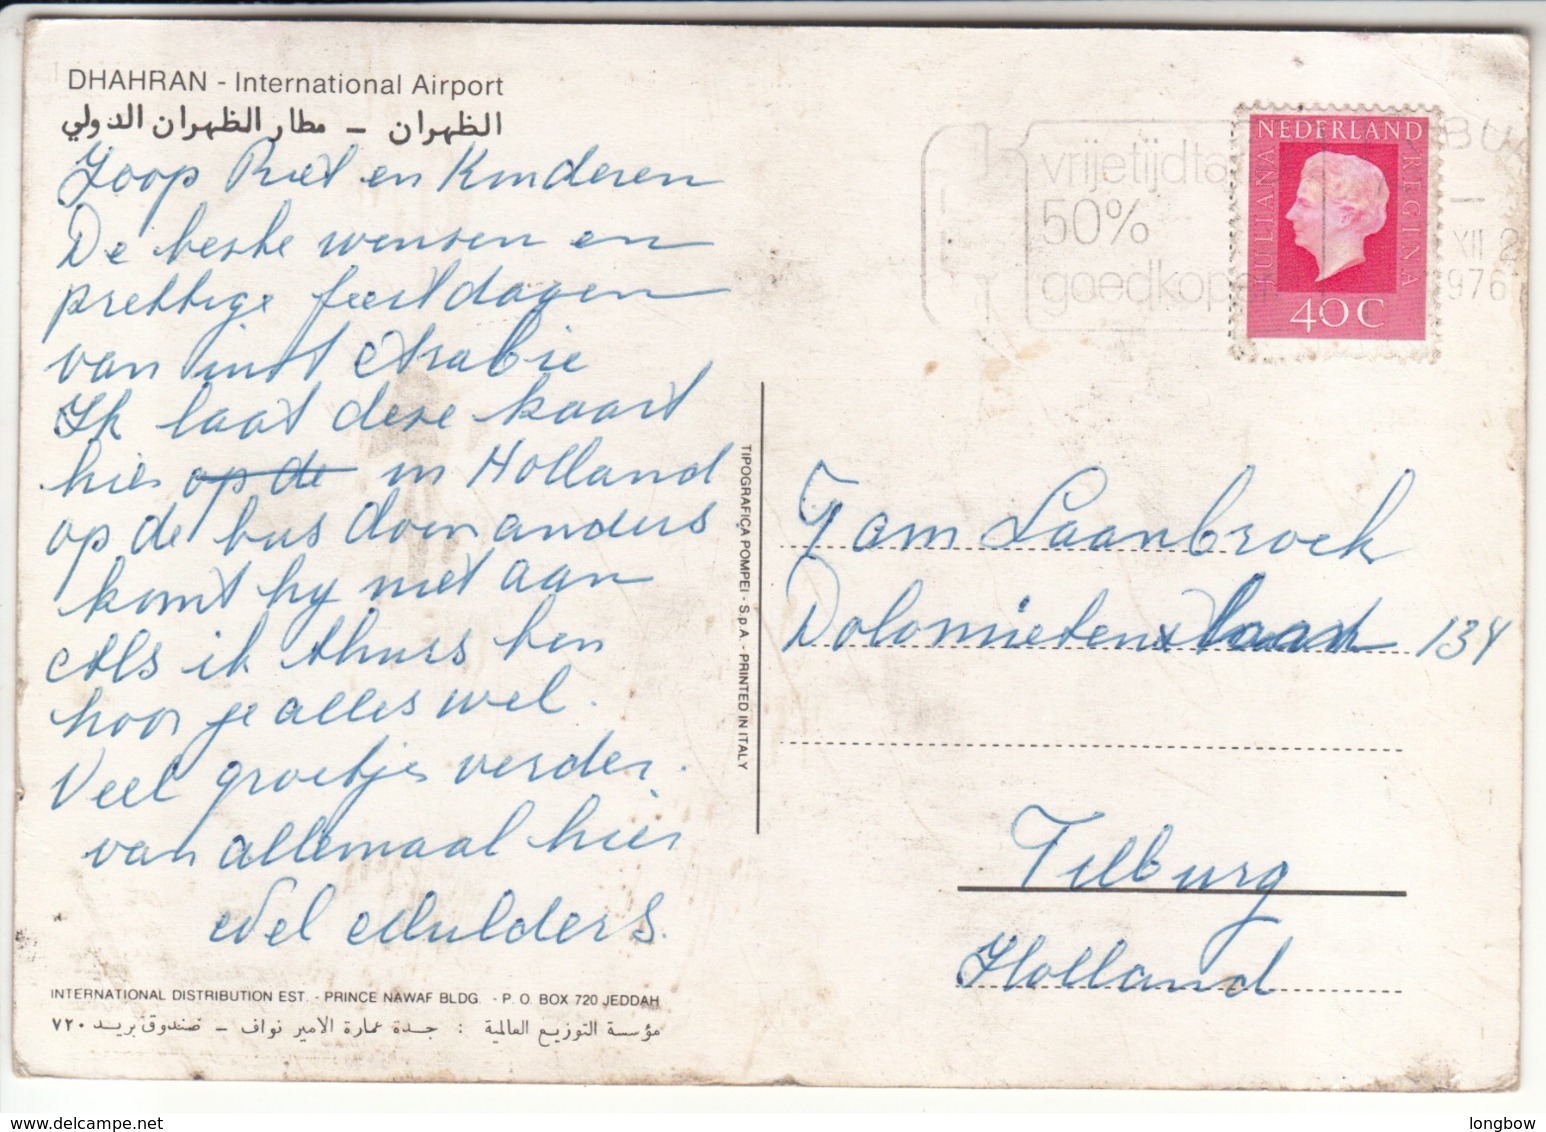 DHAHRAN - International Airport
الظهران - مطار الظهران الدولي
Joop Riet en Kinderen
De beste wensen en
prettige feestdagen
van uit Arabie
Ik laat deze kaart
hier op de in Holland
op de bus doen anders
komt hy niet aan
Als ik thuis ben
hoor je alles wel.
Veel groetjes verder.
van allemaal hier
Wel Mulders.
INTERNATIONAL DISTRIBUTION EST. - PRINCE NAWAF BLDG. - P. O. BOX 720 JEDDAH
مؤسسة التوزيع العالمية : جدة عمارة الامير نواف - صندوق بريد ٧٢٠
TIPOGRAFICA POMPEI - S.p.A. - PRINTED IN ITALY
vrijetijdta
50%
goedkoper
BU
XII 2
976
NEDERLAND
JULIANA
REGINA
40 C
Fam Laanbroek
Dolomietenstraat 134
Tilburg
Holland
longbow